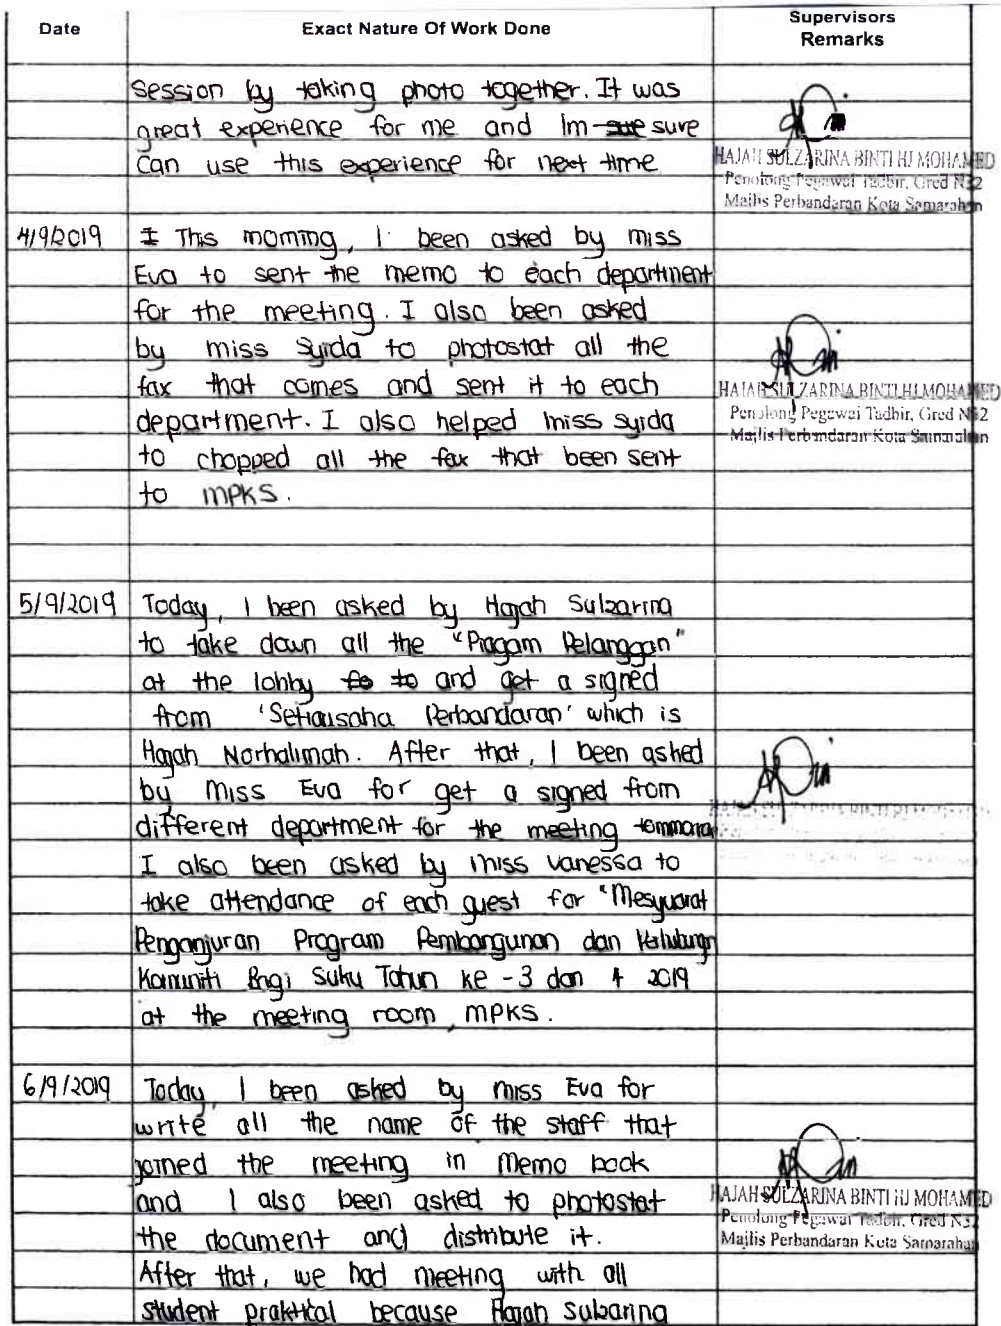 Date Exact Nature Of Work Done Supervisors Remarks
session by taking photo together. It was
great experience for me and Im sue sure
can use this experience for next time
HAJAH SULZARINA BINTI HJ MOHAMED
Penolong Pegawai Tadbir, Gred N32
Majlis Perbandaran Kota Samarahan
4/9/2019 I This morning, I been asked by miss
Eva to sent the memo to each department
for the meeting. I also been asked
by miss Syida to photostat all the
fax that comes and sent it to each
department. I also helped miss syida
to chopped all the fax that been sent
to MPKS.
HAJAH SULZARINA BINTI HJ MOHAMED
Penolong Pegawai Tadbir, Gred N32
Majlis Perbandaran Kota Samarahan
5/9/2019 Today, I been asked by Hajah Sulzarina
to take down all the "Piagam Pelanggan"
at the lobby to and get a signed
from 'Setiausaha Perbandaran' which is
Hajah Norhalimah. After that, I been asked
by Miss Eva for get a signed from
different department for the meeting
I also been asked by miss vanessa to
take attendance of each guest for "Mesyuarat
Penganjuran Program Pembangunan dan
Komuniti Bagi Suku Tahun ke -3 dan 4 2019
at the meeting room, MPKS.
6/9/2019 Today, I been asked by miss Eva for
write all the name of the staff that
joined the meeting in Memo book
and I also been asked to photostat
the document and distribute it.
After that, we had meeting with all
student praktical because Hajah Sulzarina
HAJAH SULZARINA BINTI HJ MOHAMED
Penolong Pegawai Tadbir, Gred N32
Majlis Perbandaran Kota Samarahan